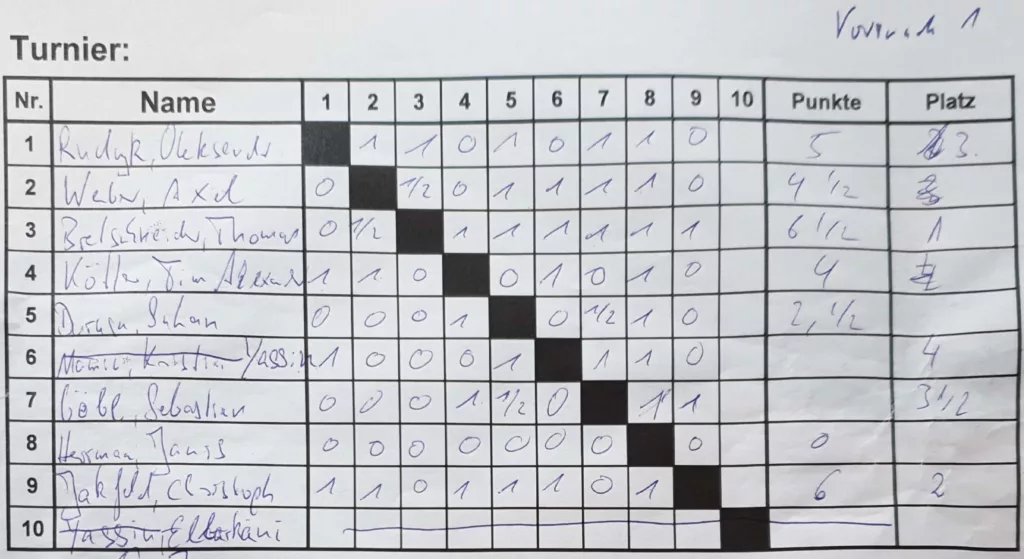 Vorrunde 1
Turnier:
Nr. Name 1 2 3 4 5 6 7 8 9 10 Punkte Platz
1 Rudyk, 1 1 0 1 0 1 1 0 5 3.
2 Weber, Axel 0 1/2 0 1 1 1 1 0 4 1/2
3 Thomas 0 1/2 1 1 1 1 1 1 6 1/2 1
4 Tim 1 1 0 0 1 0 1 0 4
5 0 0 0 1 0 1/2 1 0 2, 1/2
6 Yassin 1 0 0 0 1 1 1 0 4
7 Göbl, Sebastian 0 0 0 1 1/2 0 1 1 3 1/2
8 Herrman, Janis 0 0 0 0 0 0 0 0 0
9 Christoph 1 1 0 1 1 1 0 1 6 2
10 Yassin,